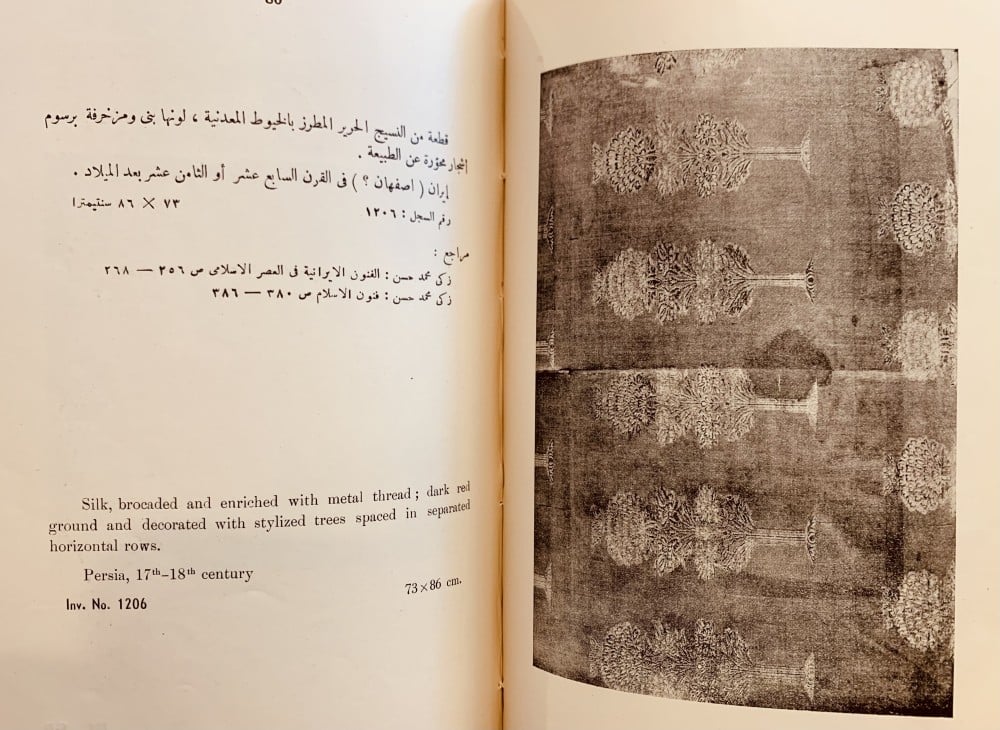 قطعة من النسيج الحرير المطرز بالخيوط المعدنية ، لونها بنى ومزخرفة برسوم
اشجار محوّرة عن الطبيعة .
إيران ( اصفهان ؟ ) فى القرن السابع عشر أو الثامن عشر بعد الميلاد .
رقم السجل : ١٢٠٦ ٧٣ × ٨٦ سنتيمترا
مراجع :
زكى محمد حسن : الفنون الايرانية فى العصر الاسلامى ص ٢٥٦ — ٢٦٨
زكى محمد حسن : فنون الاسلام ص ٣٨٠ — ٣٨٦
Silk, brocaded and enriched with metal thread ; dark red
ground and decorated with stylized trees spaced in separated
horizontal rows.
Persia, 17th–18th century
Inv. No. 1206 73 × 86 cm.